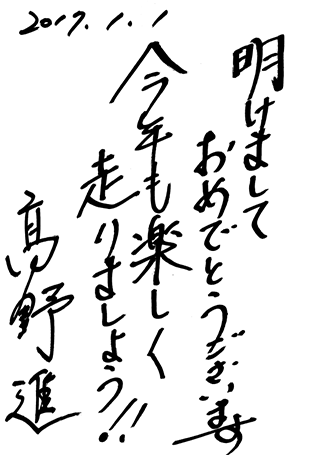 2017.1.1
明けまして
おめでとうございます
今年も楽しく
走りましょう!!
髙野進